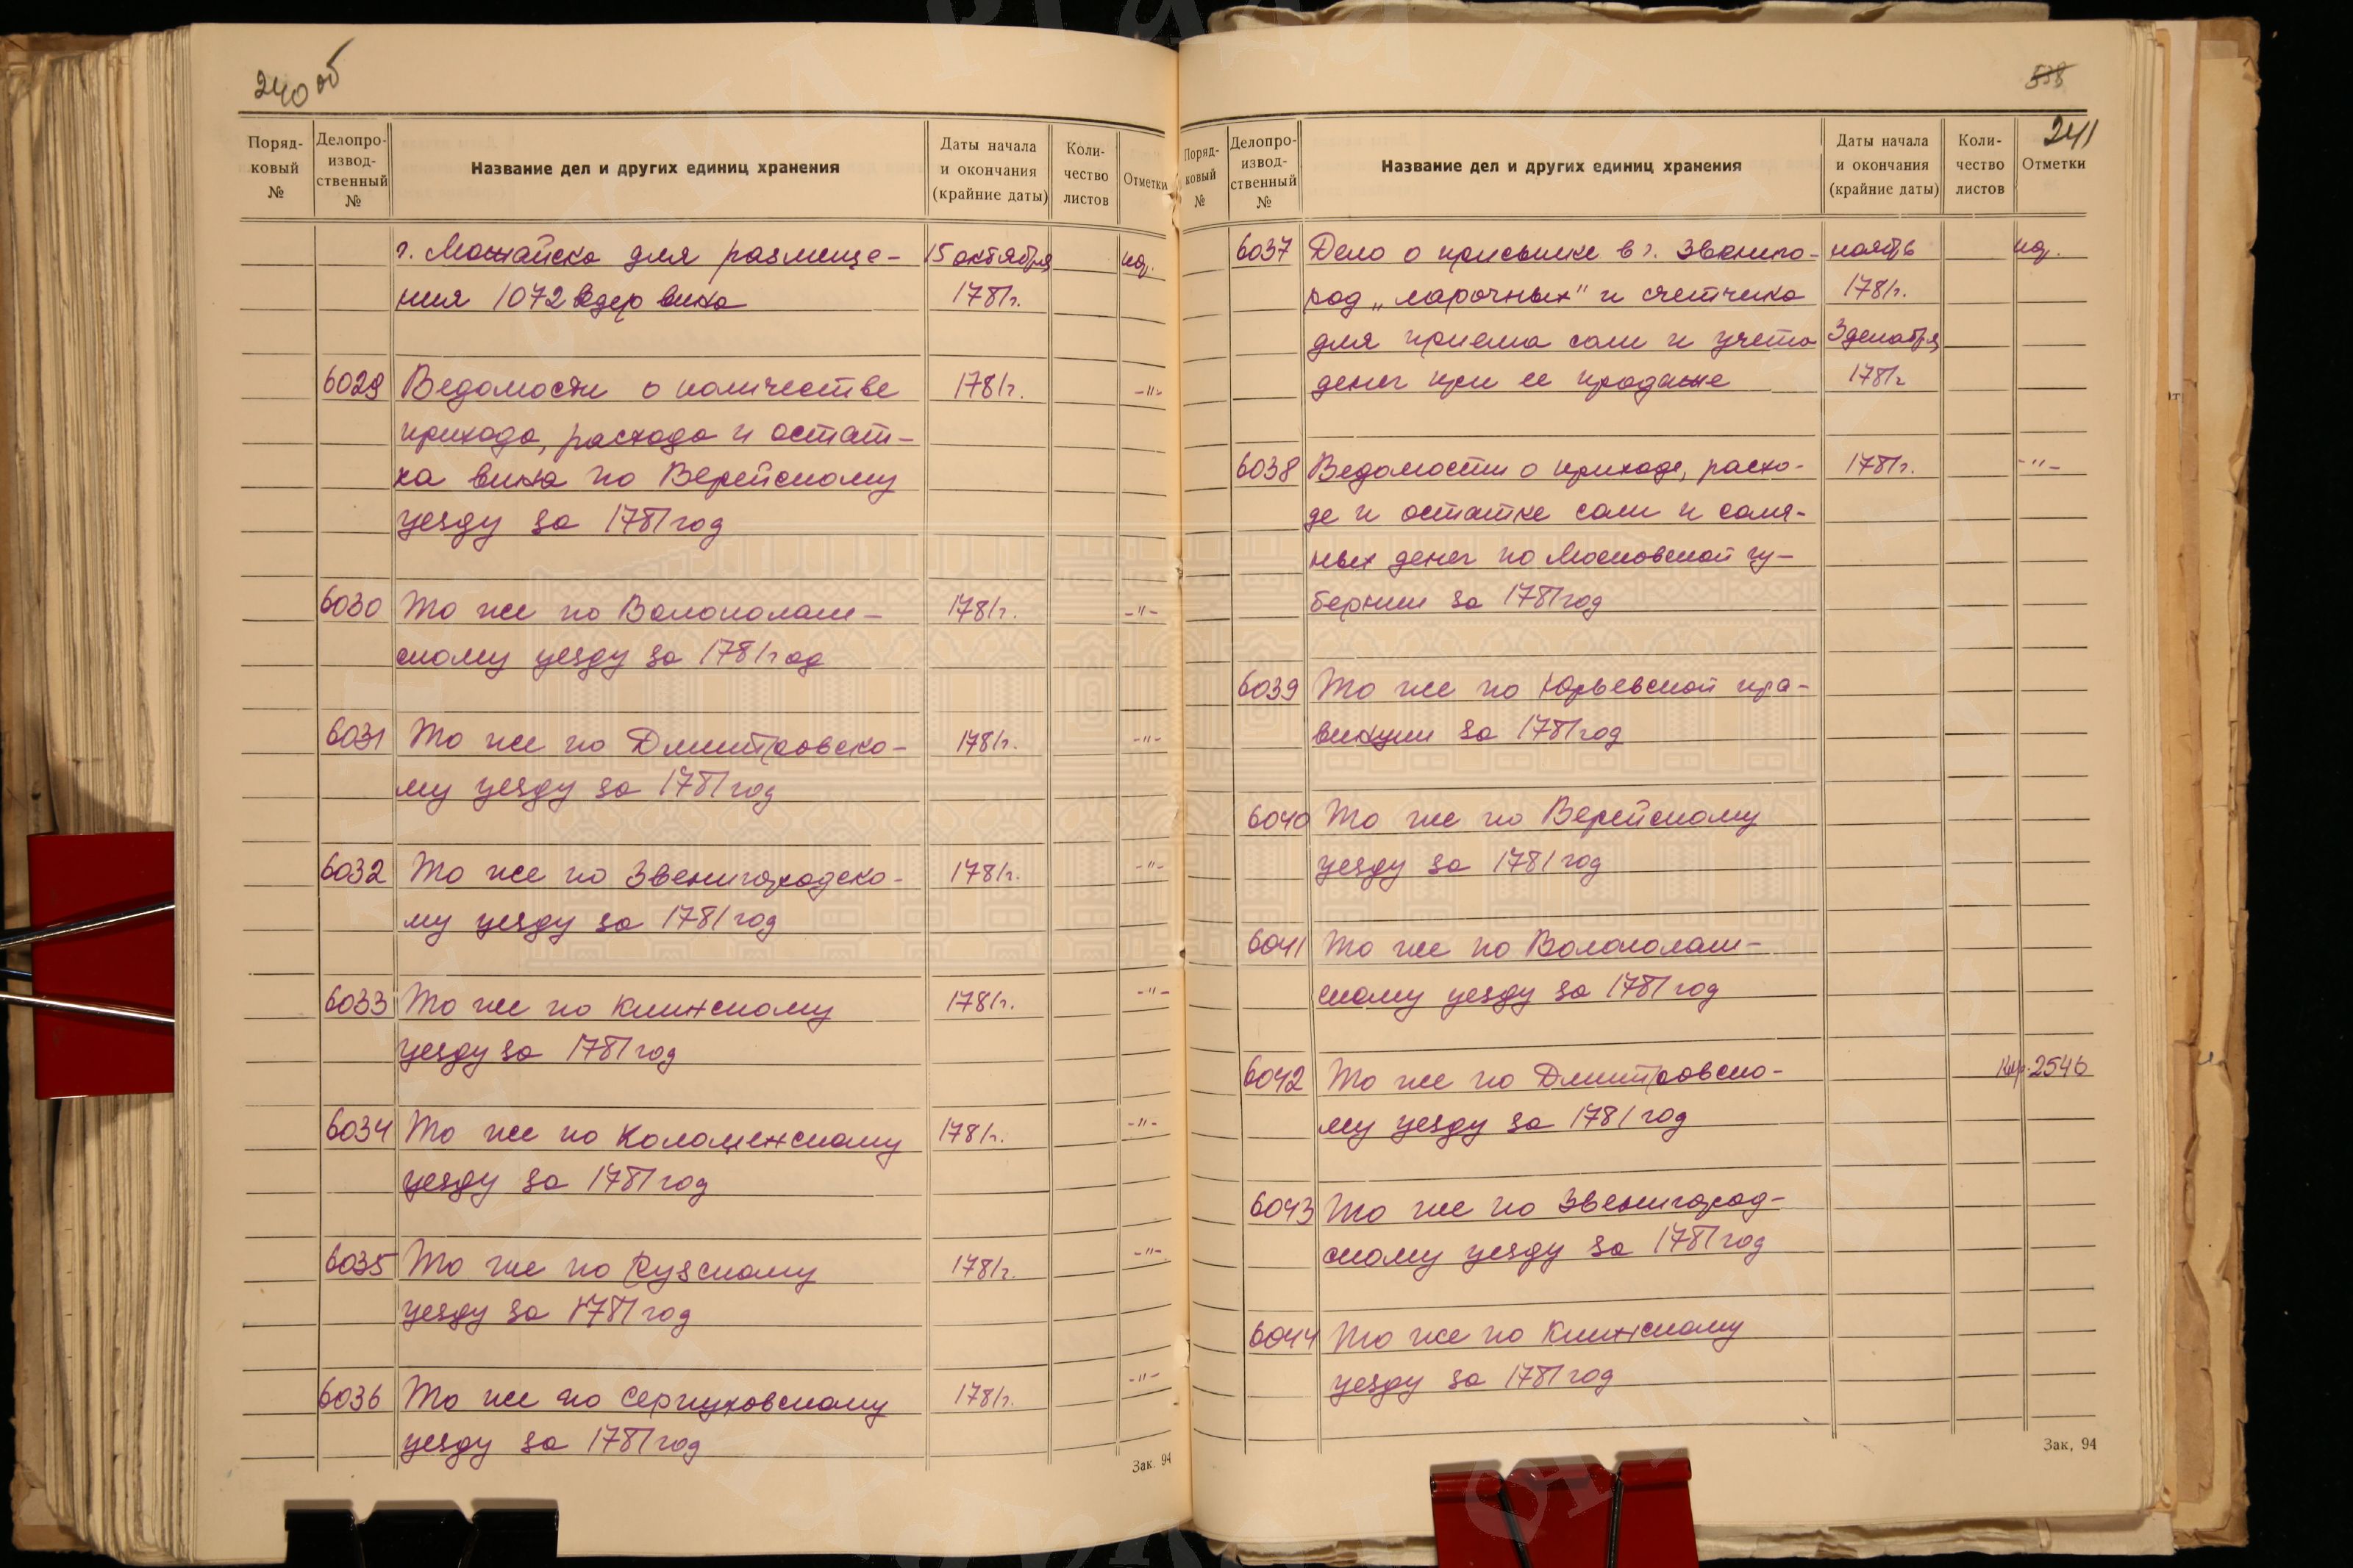 240 об
Поряд-
ковый
№
Делопро-
извод-
ственный
№
Название дел и других единиц хранения
Даты начала
и окончания
(крайние даты)
Коли-
чество
листов
Отметки
г. Можайска для размеще- 15 октября
ния 1072 ведер вина 1781г.
6029 Ведомости о количестве 1781г. -"-
прихода, расхода и остат-
ка вина по Верейскому
уезду за 1781 год
6030 То же по Волоколам- 1781г. -"-
скому уезду за 1781 год
6031 То же по Дмитровско- 1781г. -"-
му уезду за 1781 год
6032 То же по Звенигородско- 1781г. -"-
му уезду за 1781 год
6033 То же по Клинскому 1781г. -"-
уезду за 1781 год
6034 То же по Коломенскому 1781г. -"-
уезду за 1781 год
6035 То же по Рузскому 1781г. -"-
уезду за 1781 год
6036 То же по Серпуховскому 1781г. -"-
уезду за 1781 год
Зак. 94
538
241
Поряд-
ковый
№
Делопро-
извод-
ственный
№
Название дел и других единиц хранения
Даты начала
и окончания
(крайние даты)
Коли-
чество
листов
Отметки
6037 Дело о присылке в г. Звениго- ноябрь
род „ларочных" и счетчика 1781г.
для приема соли и учета 3 декабря
денег при ее продаже 1781г
6038 Ведомости о приходе, расхо- 1781г. -"-
де и остатке соли и соля-
ных денег по Московской гу-
бернии за 1781 год
6039 То же по Юрьевской про-
винции за 1781 год
6040 То же по Верейскому
уезду за 1781 год
6041 То же по Волоколам-
скому уезду за 1781 год
6042 То же по Дмитровско- 2546
му уезду за 1781 год
6043 То же по Звенигород-
скому уезду за 1781 год
6044 То же по Клинскому
уезду за 1781 год
Зак, 94